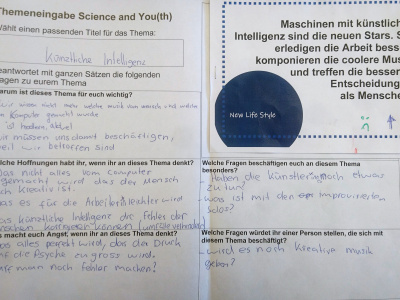 Themeneingabe Science and You(th)
Wählt einen passenden Titel für das Thema:
Künstliche Intelligenz
eantwortet mit ganzen Sätzen die folgenden
agen zu eurem Thema
arum ist dieses Thema für euch wichtig?
wir wissen nicht mehr welche musik vom mensch und welche
Computer gemacht wurde
müssen uns damit beschäftigen,
weil wir betroffen sind
lche Hoffnungen habt ihr, wenn ihr an dieses Thema denkt?
Das nicht alles vom Computer
gemacht wird das der Mensch
kreativ ist.
as es für die Arbeiter leichter wird
as künstliche Intelligenz die fehler der
korrigieren können
s macht euch Angst, wenn ihr an dieses Thema denkt?
as alles perfekt wird, das der Druck
uf die Psyche zu gross wird.
arf man noch fehler machen?
Maschinen mit künstlich
Intelligenz sind die neuen Stars. S
erledigen die Arbeit besse
komponieren die coolere Mus
und treffen die besser
Entscheidung
als Mensche
New Life Style
Welche Fragen beschäftigen euch an diesem Thema
besonders?
- Haben die künstler noch etwas
zu tun?
- was ist mit den improvisierten
Solos?
Welche Fragen würdet ihr einer Person stellen, die sich mit
diesem Thema beschäftigt?
- wird es noch kreative musik
geben?